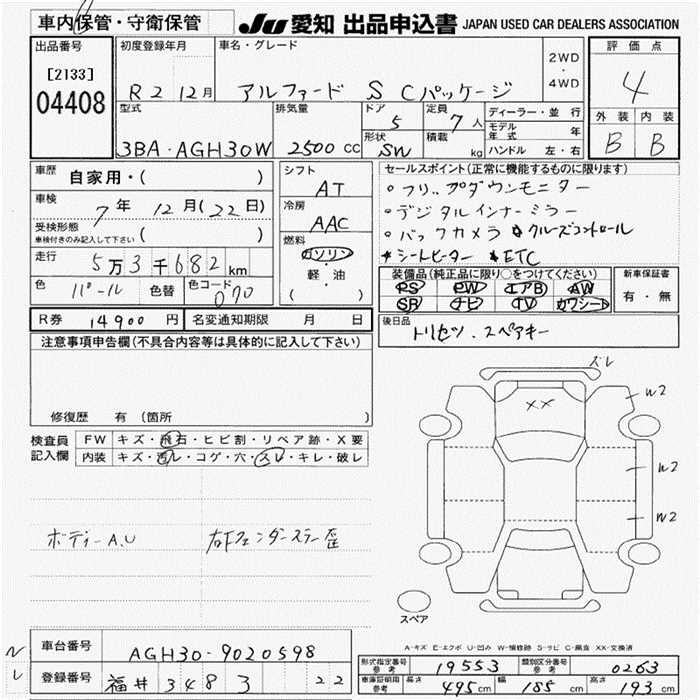 車内保管・守衛保管 JU 愛知 出品申込書 JAPAN USED CAR DEALERS ASSOCIATION
出品番号 初度登録年月 車名・グレード 2WD・4WD 評価点
[2133] R2 12月 アルファード S Cパッケージ 4
04408 型式 排気量 ドア 定員 ディーラー・並行 外装 内装
5 7人 モデル年式 年
3BA・AGH30W 2500cc 形状 SW 積載 kg ハンドル 左・右 B B
車歴 自家用・( ) シフト AT セールスポイント(正常に機能するものに限ります)
車検 7年 12月(22日) 冷房 AAC ○フリップダウンモニター
○デジタルインナーミラー
受検形態 車検付きのみ記入して下さい ( ) 燃料 ガソリン・軽・油 ( ) ○バックカメラ ★クルーズコントロール
走行 5万3千682km ★シートヒーター ★ETC
色 パール 色替 色コード 070 装備品(純正品に限り○をつけてください) 新車保証書
PS PW エアB AW 有・無
SR ナビ TV カワシート
R券 14900円 名変通知期限 月 日 後日品 トリセツ.スペアキー
注意事項申告欄(不具合内容等は具体的に記入して下さい)
修復歴 有 (箇所 )
ズレ
XX
W2
W2
W2
検査員記入欄 FW キズ・飛石・ヒビ割・リペア跡・X要
内装 キズ・汚レ・コゲ・穴・スレ・キレ・破レ
ボディーA.U 右下フェンダーステー歪
スペア
A-キズ E-エクボ U-凹み W-補修跡 S-サビ C-腐食 XX-交換済
車台番号 AGH30-9020598
登録番号 福井 348 3 22
形式指定番号 参考 19553 類別区分番号 参考 0263
車庫証明用 参考 長さ 495cm 幅 185cm 高さ 193cm